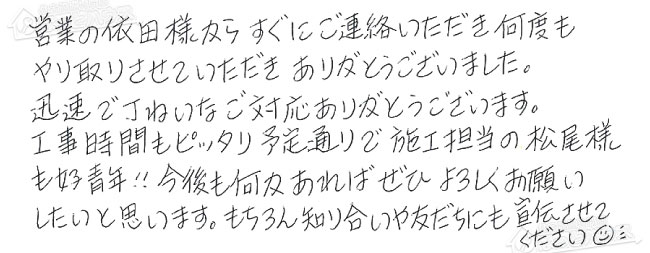 営業の依田様から すぐにご連絡いただき何度も
やり取りさせていただき ありがとうございました。
迅速で丁ねいなご対応ありがとうございます。
工事時間もピッタリ予定通りで 施工担当の松尾様
も好青年!! 今後も何かあれば ぜひ よろしくお願い
したいと思います。もちろん知り合いや友だちにも宣伝させて
ください☺ミ